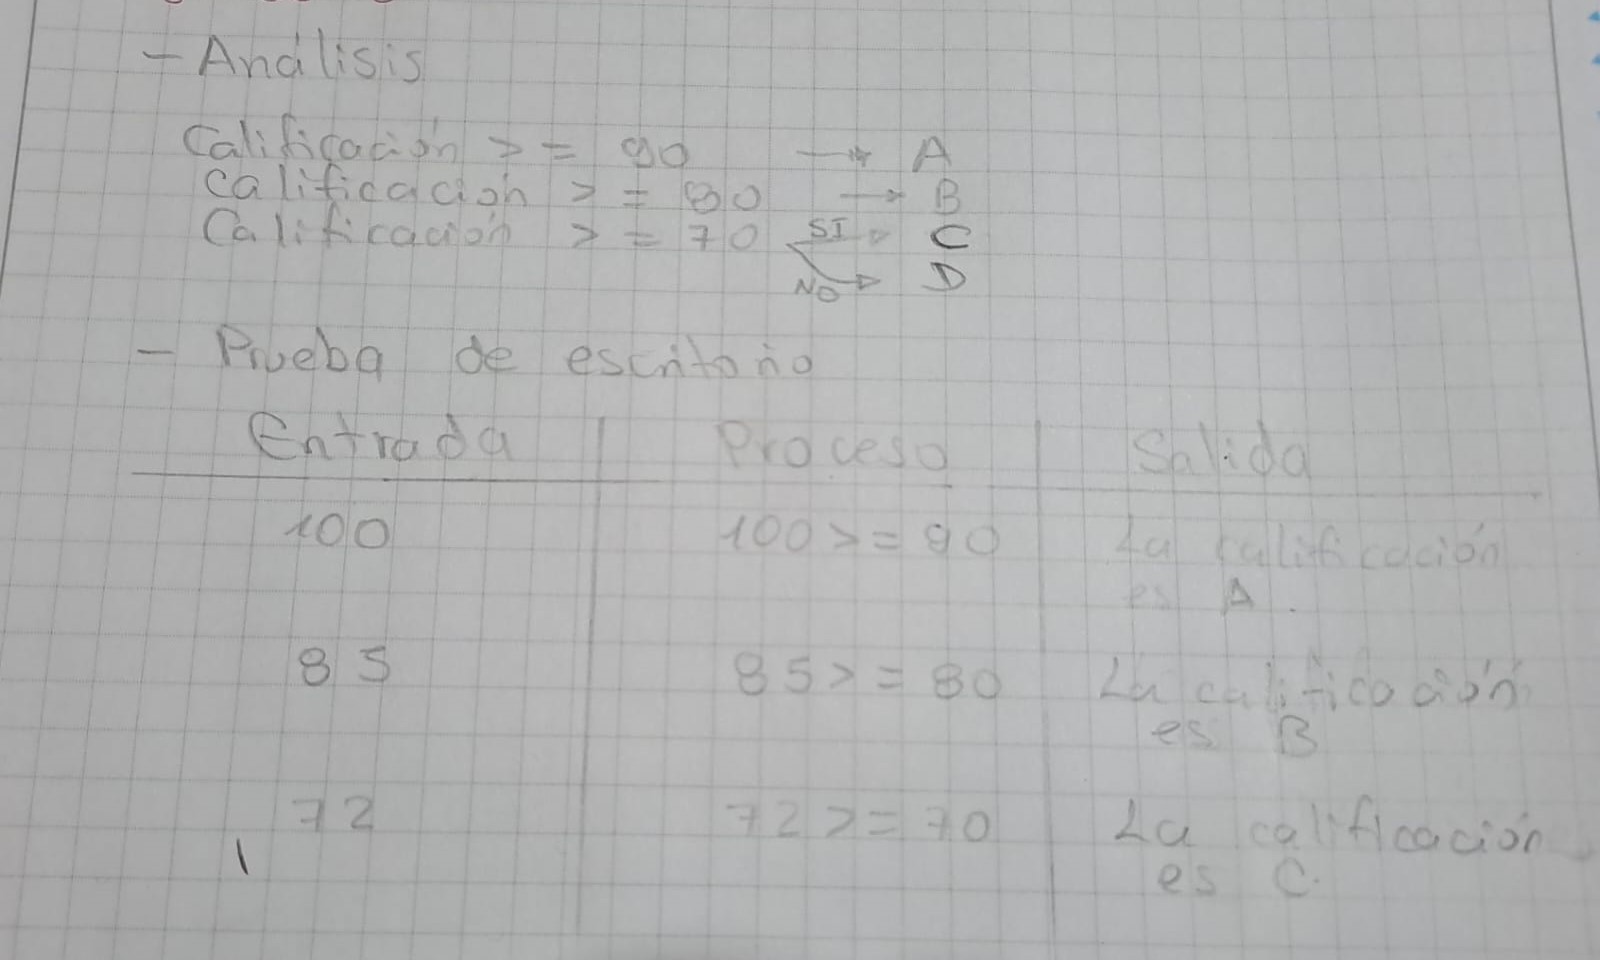 - Análisis
Calificación >= 90 → A
Calificación >= 80 → B
Calificación >= 70 SI → C
NO → D
- Prueba de escritorio
Entrada | Proceso | Salida
100 | 100 >= 90 | La calificación
es A.
85 | 85 >= 80 | La calificación
es B
72 | 72 >= 70 | La calificación
es C.